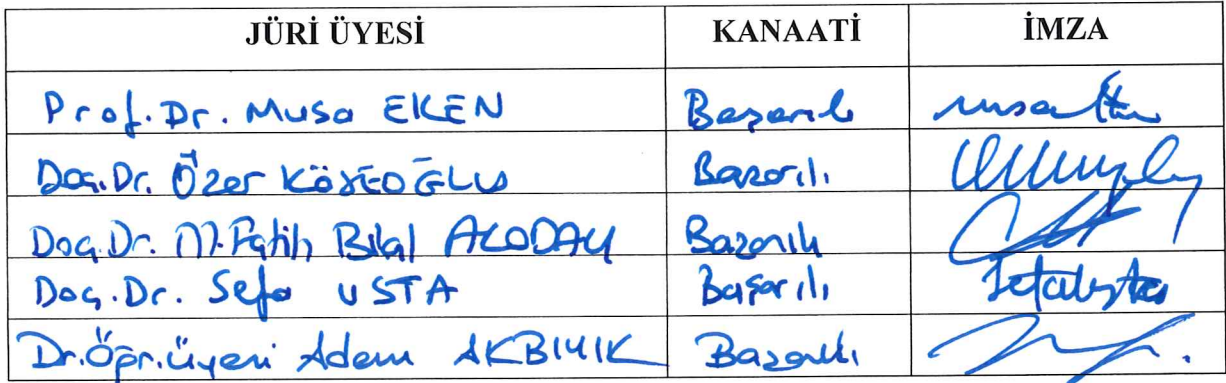 JÜRİ ÜYESİ KANAATİ İMZA
Prof. Dr. Musa EKEN Başarılı
Doç. Dr. Özer KÖSEOĞLU Başarılı
Doç. Dr. M. Fatih Bilal ALODALI Başarılı
Doç. Dr. Sefa USTA Başarılı
Dr. Öğr. Üyesi Adem AKBIYIK Başarılı